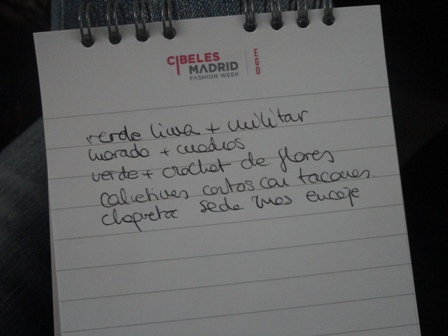 CIBELES
MADRID
FASHION WEEK
EGO
verde lima + militar
morado + cuadros
verde + crochet de flores
calcetines cortos con tacones
chaqueta seda mas encaje